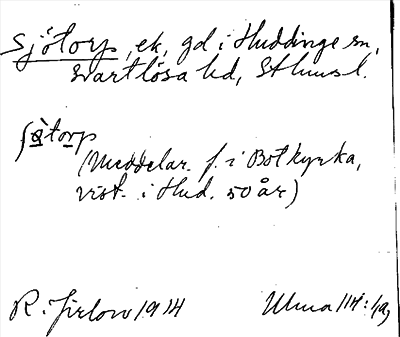 Sjötorp, ek, gd i Huddinge sn,
Svartlösa hd, Sthms l.
ʃö̀torp
(Meddelar. f. i Botkyrka,
vist. i Hud. 50 år)
R. Jirlow 1914